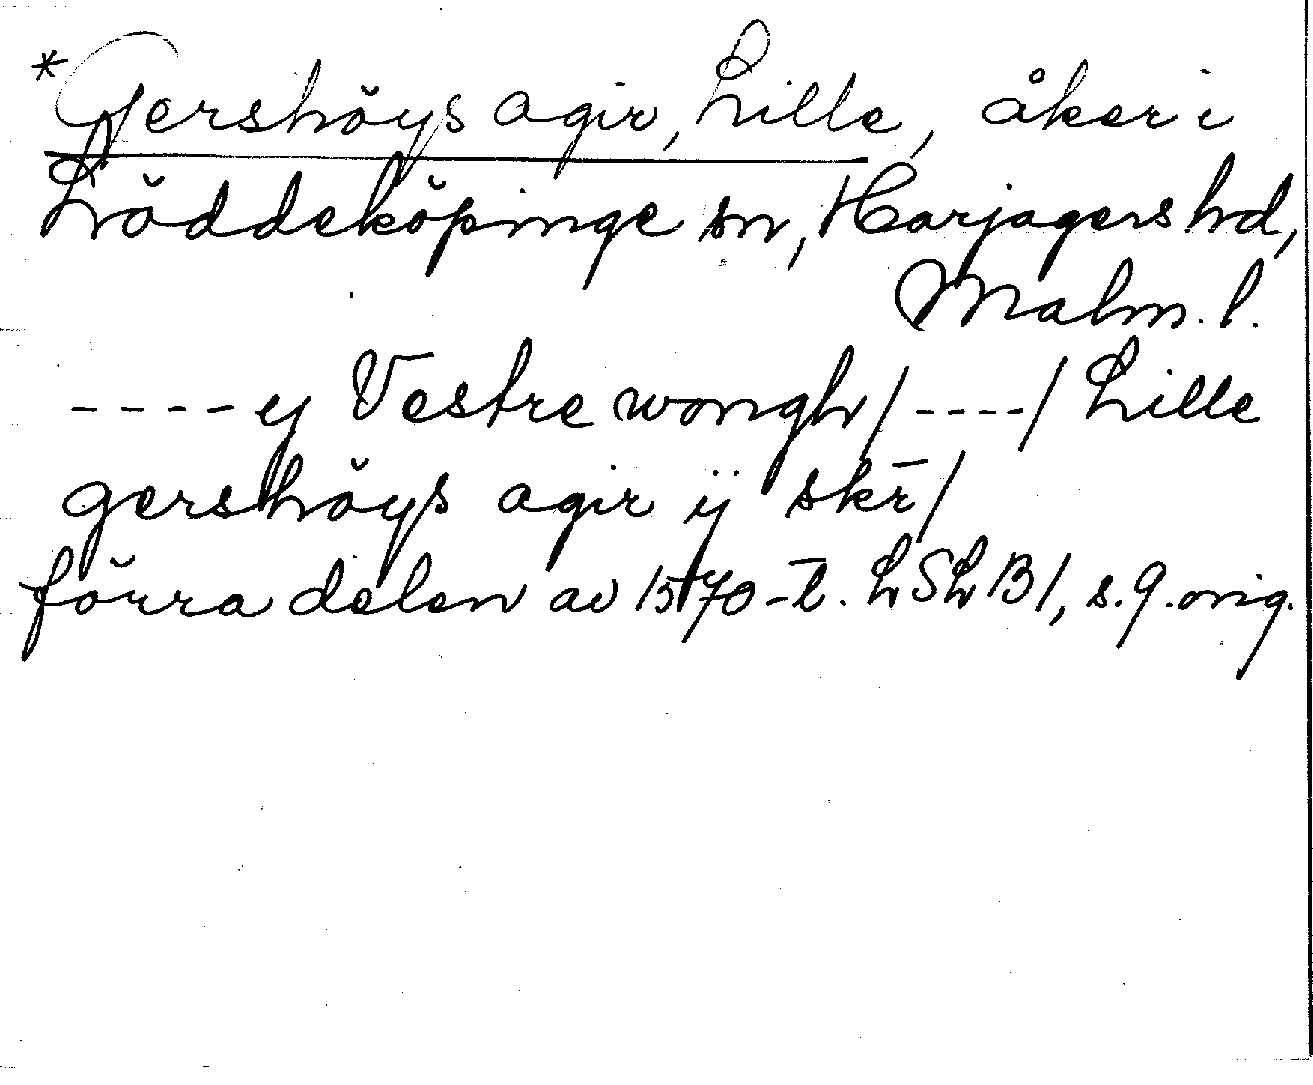 *Gershöys agir, Lille, åker i
Löddeköpinge sn, Harjagers hd,
Malm. l.
----ij Vestre wongh/----/ Lille
gershöys agir ÿ skr̄/
förra delen av 1570-t. LSLB1, s.9.orig.